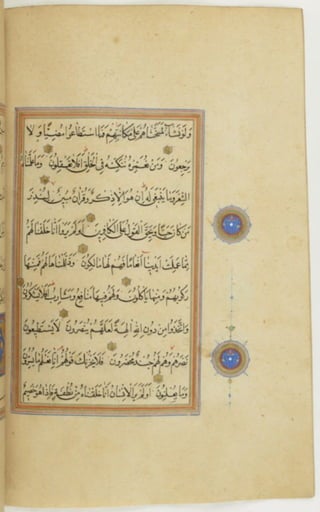 ولو نشاء لمسخناهم على مكانتهم فما استطاعوا مضيا ولا
يرجعون ومن نعمره ننكسه في الخلق افلا يعقلون وما علمناه
الشعر وما ينبغي له ان هو الا ذكر وقرآن مبين لينذر
من كان حيا ويحق القول على الكافرين اولم يروا انا خلقنا لهم
مما عملت ايدينا انعاما فهم لها مالكون وذللناها لهم فمنها
ركوبهم ومنها يأكلون ولهم فيها منافع ومشارب افلا يشكرون
واتخذوا من دون الله الهة لعلهم ينصرون لا يستطيعون
نصرهم وهم لهم جند محضرون فلا يحزنك قولهم انا نعلم ما يسرون
وما يعلنون اولم ير الانسان انا خلقناه من نطفة فاذا هو خصيم